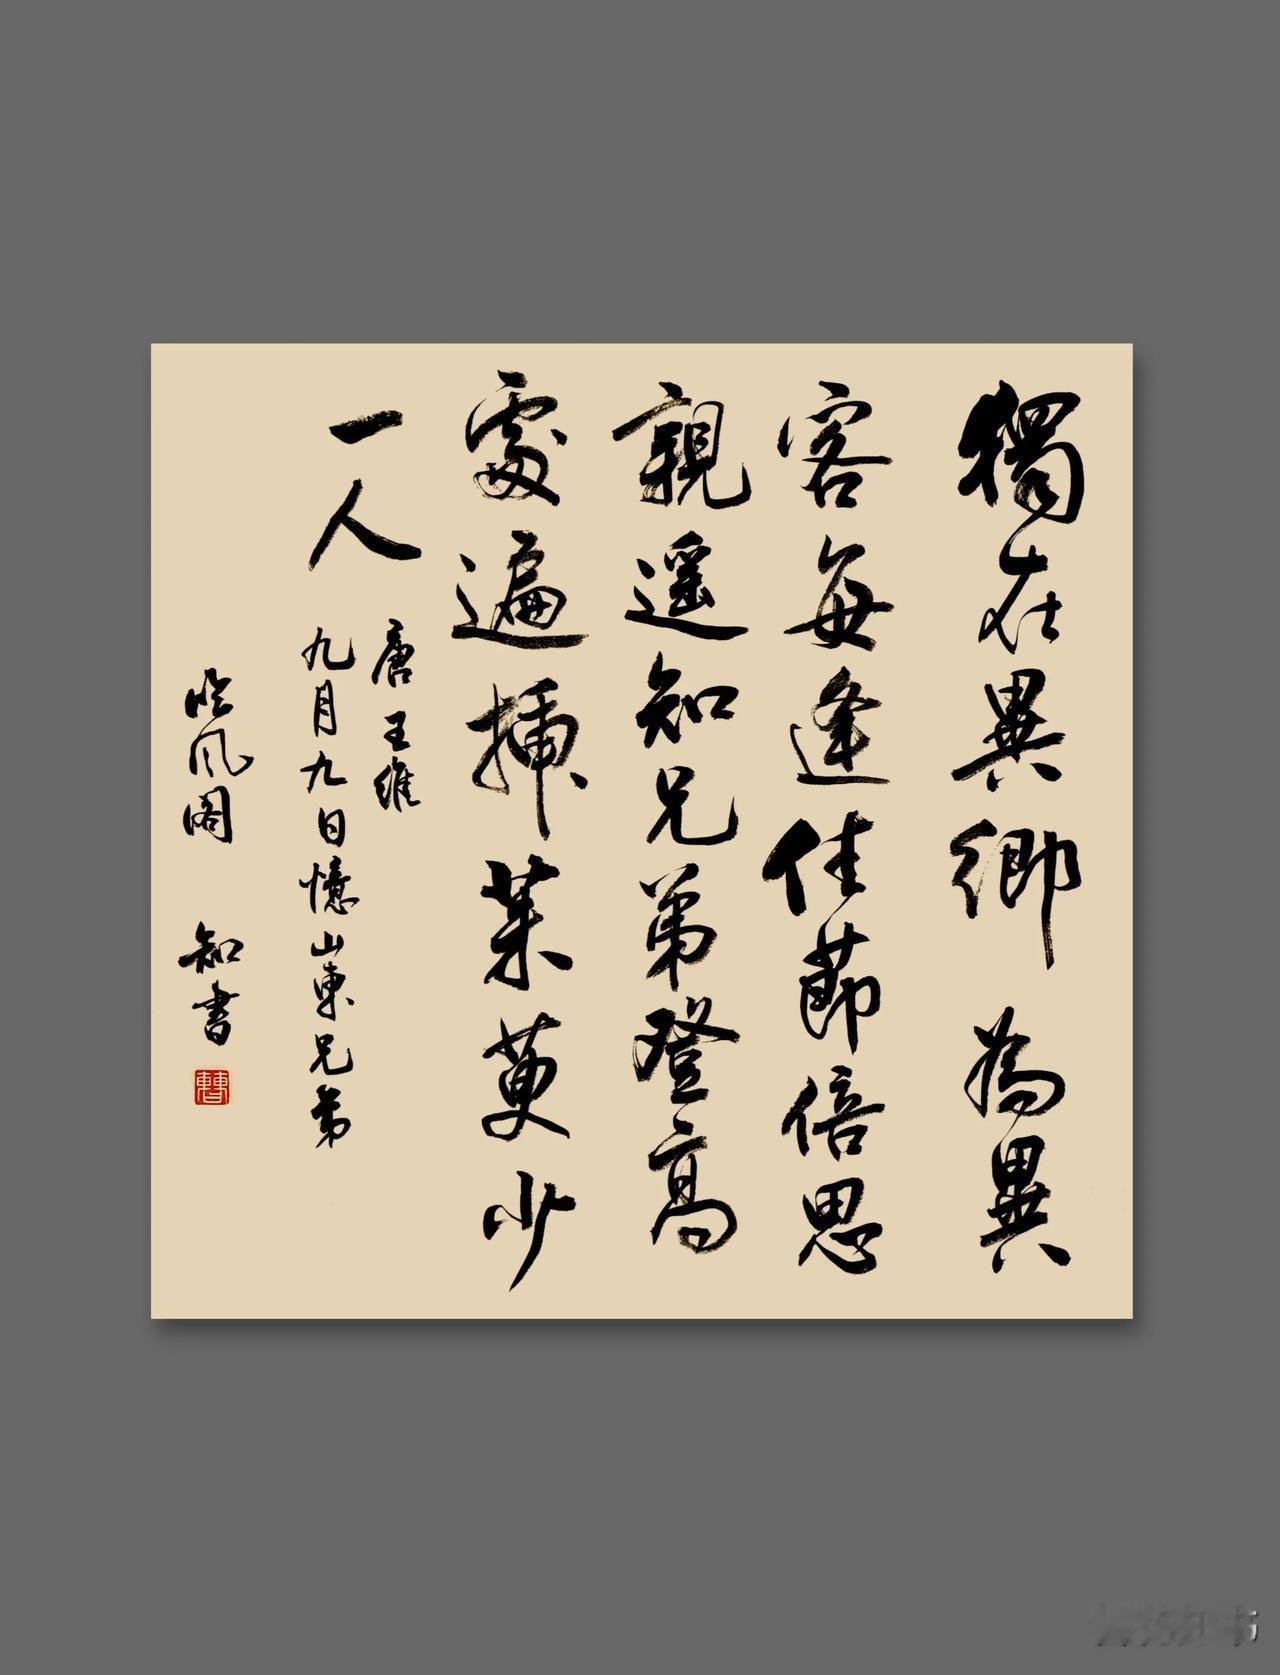 獨在異鄉為異
客每逢佳節倍思
親遥知兄弟登高
處遍插茱萸少
一人
唐王維
九月九日憶山東兄弟
吟风阁 知書